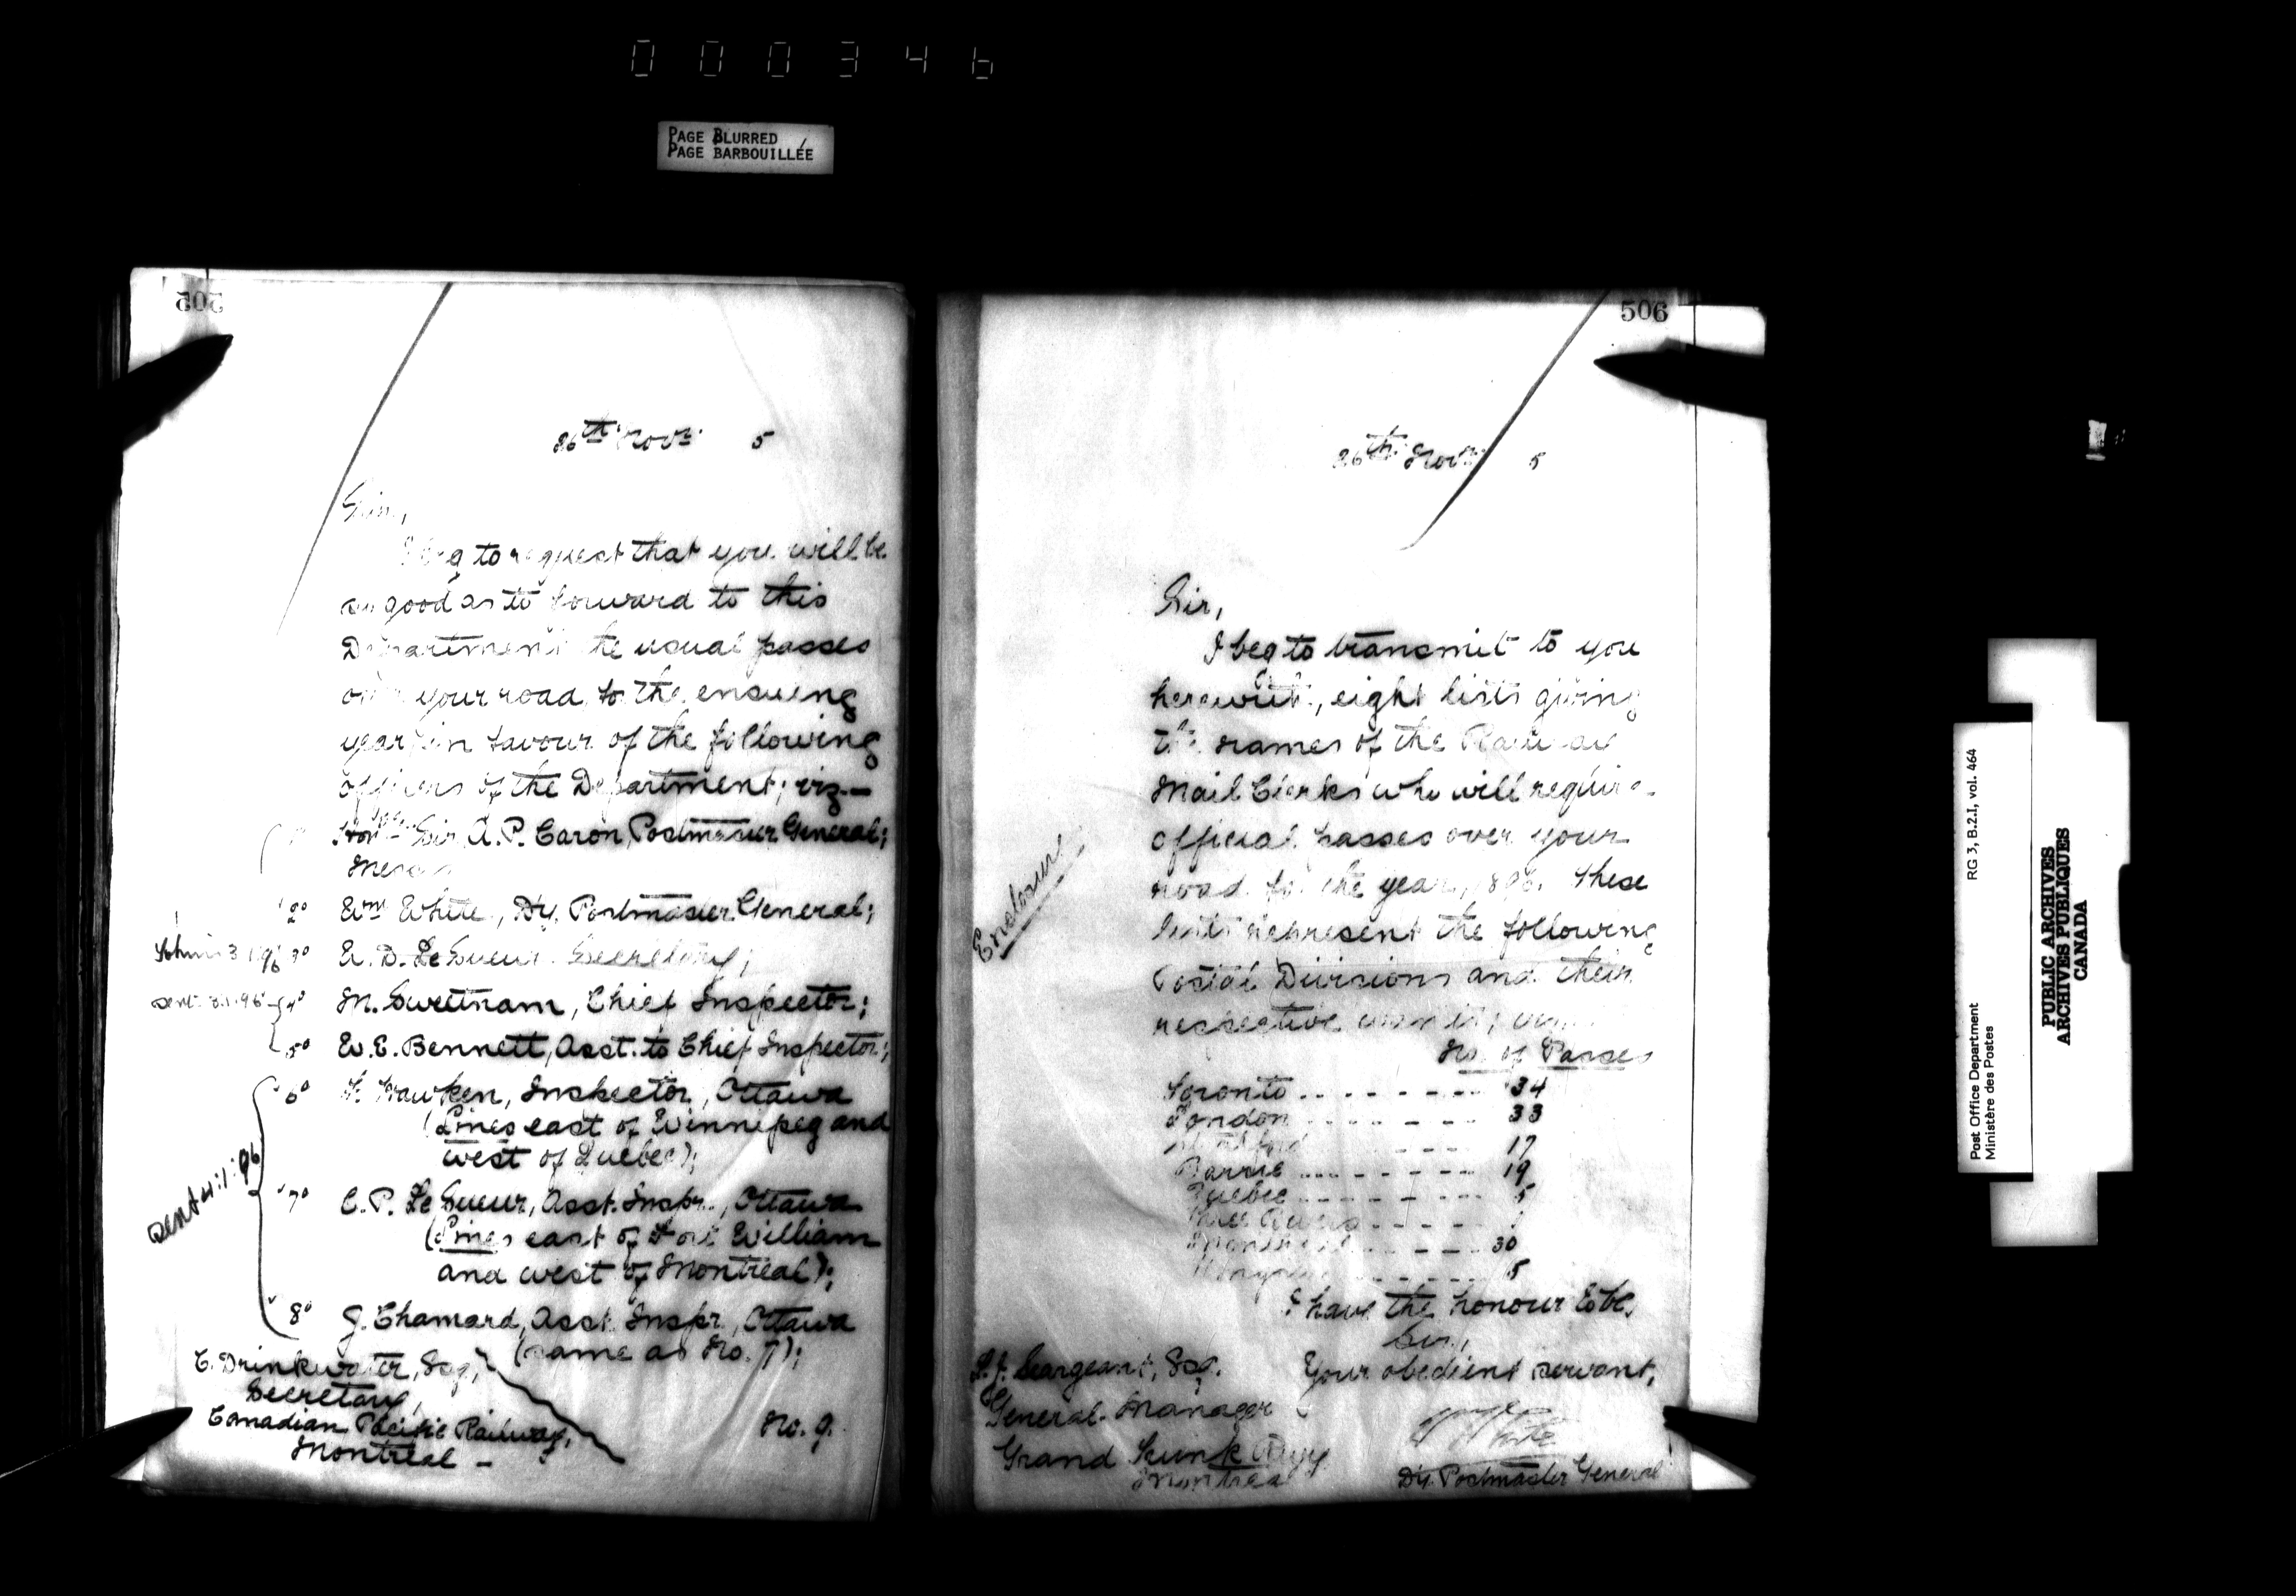 000346
PAGE BLURRED
PAGE BARBOUILLÉE
505
26th Novr. 5
Sir,
I beg to request that you will be
so good as to forward to this
Department the usual passes
over your road, for the ensuing
year, in favour of the following
officers of the Department; viz.—
Hon. Sir A. P. Caron, Postmaster General;
Messrs
2° Wm White, Dy. Postmaster General;
3° W. D. LeSueur, Secretary;
sent 3.1.96 4° M. Sweetnam, Chief Inspector;
5° W. E. Bennett, Asst. to Chief Inspector;
6° F. Hawken, Inspector, Ottawa
(Lines east of Winnipeg and
west of Quebec);
sent 4:1:96
7° C. P. LeSueur, Asst. Inspr., Ottawa
(Lines east of Fort William
and west of Montreal);
8° J. Chamard, Asst. Inspr., Ottawa
(same as No. 7);
C. Drinkwater, Esq,
Secretary,
Canadian Pacific Railway,
Montreal —
No. 9.
506
26th Novr. 5
Sir,
I beg to transmit to you
herewith, eight lists giving
the names of the Railway
Mail Clerks who will require
official passes over your
road for the year, 1896. These
lists represent the following
Postal Divisions and their
respective
Enclosure
No. of Passes
Toronto -------- 34
London -------- 33
Stratford -------- 17
Barrie -------- 19
Quebec -------- 5
Three Rivers
Montreal ----- 30
Kingston ------- 5
I have the honour to be,
Sir,
Your obedient servant,
L. J. Seargeant, Esq.
General Manager
Grand Trunk Rwy
Montreal
W White
Dy. Postmaster General
Post Office Department
Ministère des Postes
RG 3, B.2.I, vol. 464
PUBLIC ARCHIVES
ARCHIVES PUBLIQUES
CANADA